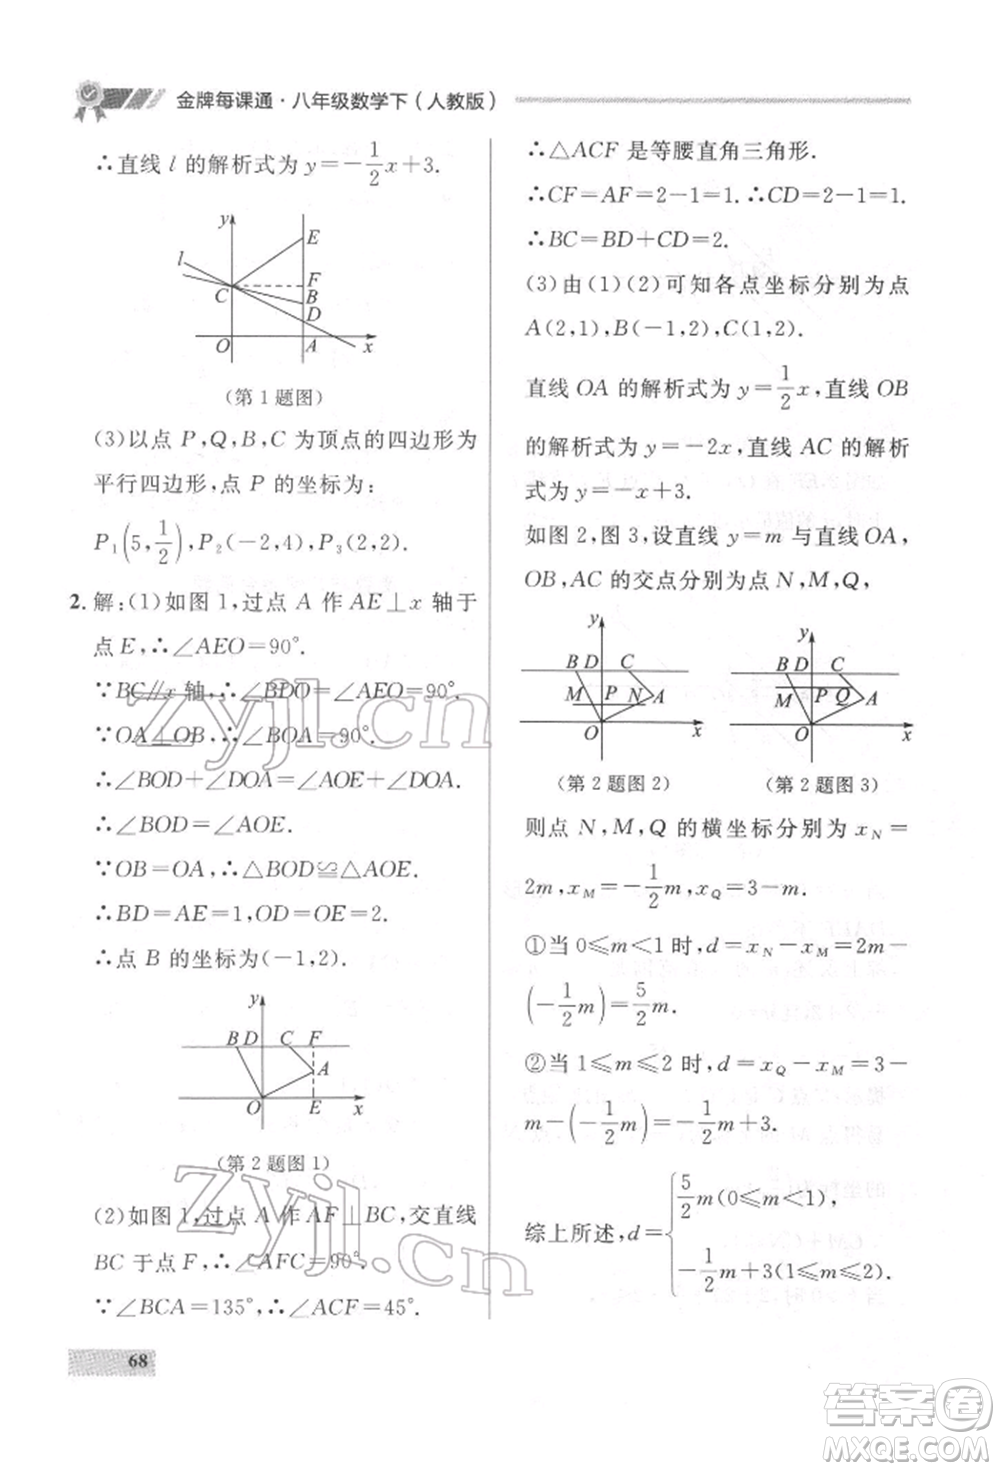 金牌每课通·八年级数学下(人教版)
∴直线 l 的解析式为 y=-1/2x+3.
y
E
l
F
C
B
D
O
A
x
(第 1 题图)
(3)以点 P,Q,B,C 为顶点的四边形为
平行四边形,点 P 的坐标为:
P₁(5,1/2),P₂(-2,4),P₃(2,2).
2. 解:(1)如图 1,过点 A 作 AE⊥x 轴于
点 E,∴∠AEO=90°.
∵BC∥x 轴,∴∠BDO=∠AEO=90°.
∵OA⊥OB,∴∠BOA=90°.
∴∠BOD+∠DOA=∠AOE+∠DOA.
∴∠BOD=∠AOE.
∵OB=OA,∴△BOD≌△AOE.
∴BD=AE=1,OD=OE=2.
∴点 B 的坐标为(-1,2).
y
B D C F
A
O E x
(第 2 题图 1)
(2)如图 1,过点 A 作 AF⊥BC,交直线
BC 于点 F,∴∠AFC=90°.
∵∠BCA=135°,∴∠ACF=45°.
68
∴△ACF 是等腰直角三角形.
∴CF=AF=2-1=1.∴CD=2-1=1.
∴BC=BD+CD=2.
(3)由(1)(2)可知各点坐标分别为点
A(2,1),B(-1,2),C(1,2).
直线 OA 的解析式为 y=1/2x,直线 OB
的解析式为 y=-2x,直线 AC 的解析
式为 y=-x+3.
如图 2,图 3,设直线 y=m 与直线 OA,
OB,AC 的交点分别为点 N,M,Q,
y
B D C
M P N A
O x
(第 2 题图 2)
y
B D C
M P Q A
O x
(第 2 题图 3)
则点 N,M,Q 的横坐标分别为 x_N=
2m,x_M=-1/2m,x_Q=3-m.
①当 0≤m<1 时,d=x_N-x_M=2m-
(-1/2m)=5/2m.
②当 1≤m≤2 时,d=x_Q-x_M=3-
m-(-1/2m)=-1/2m+3.
综上所述,d={5/2m(0≤m<1),
-1/2m+3(1≤m≤2).
zyjl.cn
zyjl.cn
答案圈
MXQE.COM